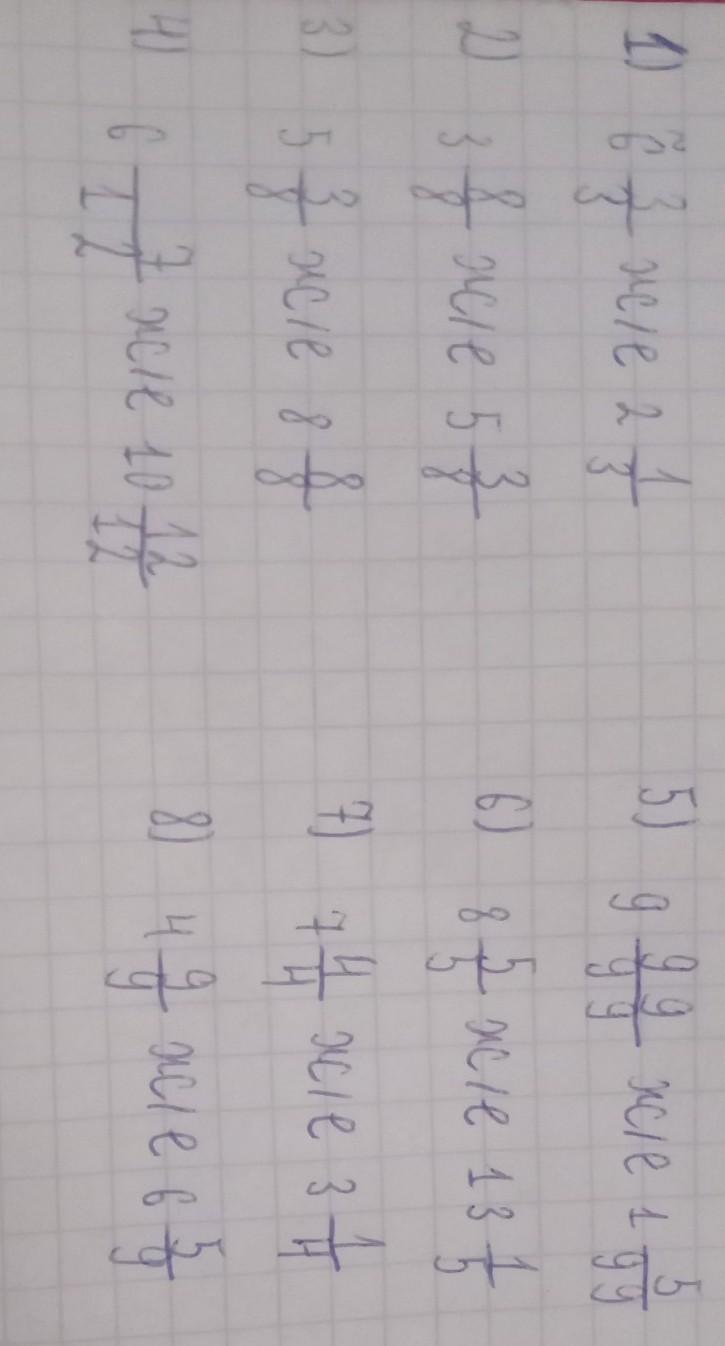 1) 6 3/3 ж/е 2 1/3
2) 3 8/8 ж/е 5 3/8
3) 5 3/8 ж/е 8 8/8
4) 6 7/12 ж/е 10 12/12
5) 9 99/99 ж/е 1 5/99
6) 8 5/5 ж/е 13 1/5
7) 7 4/4 ж/е 3 1/4
8) 4 9/9 ж/е 6 5/9